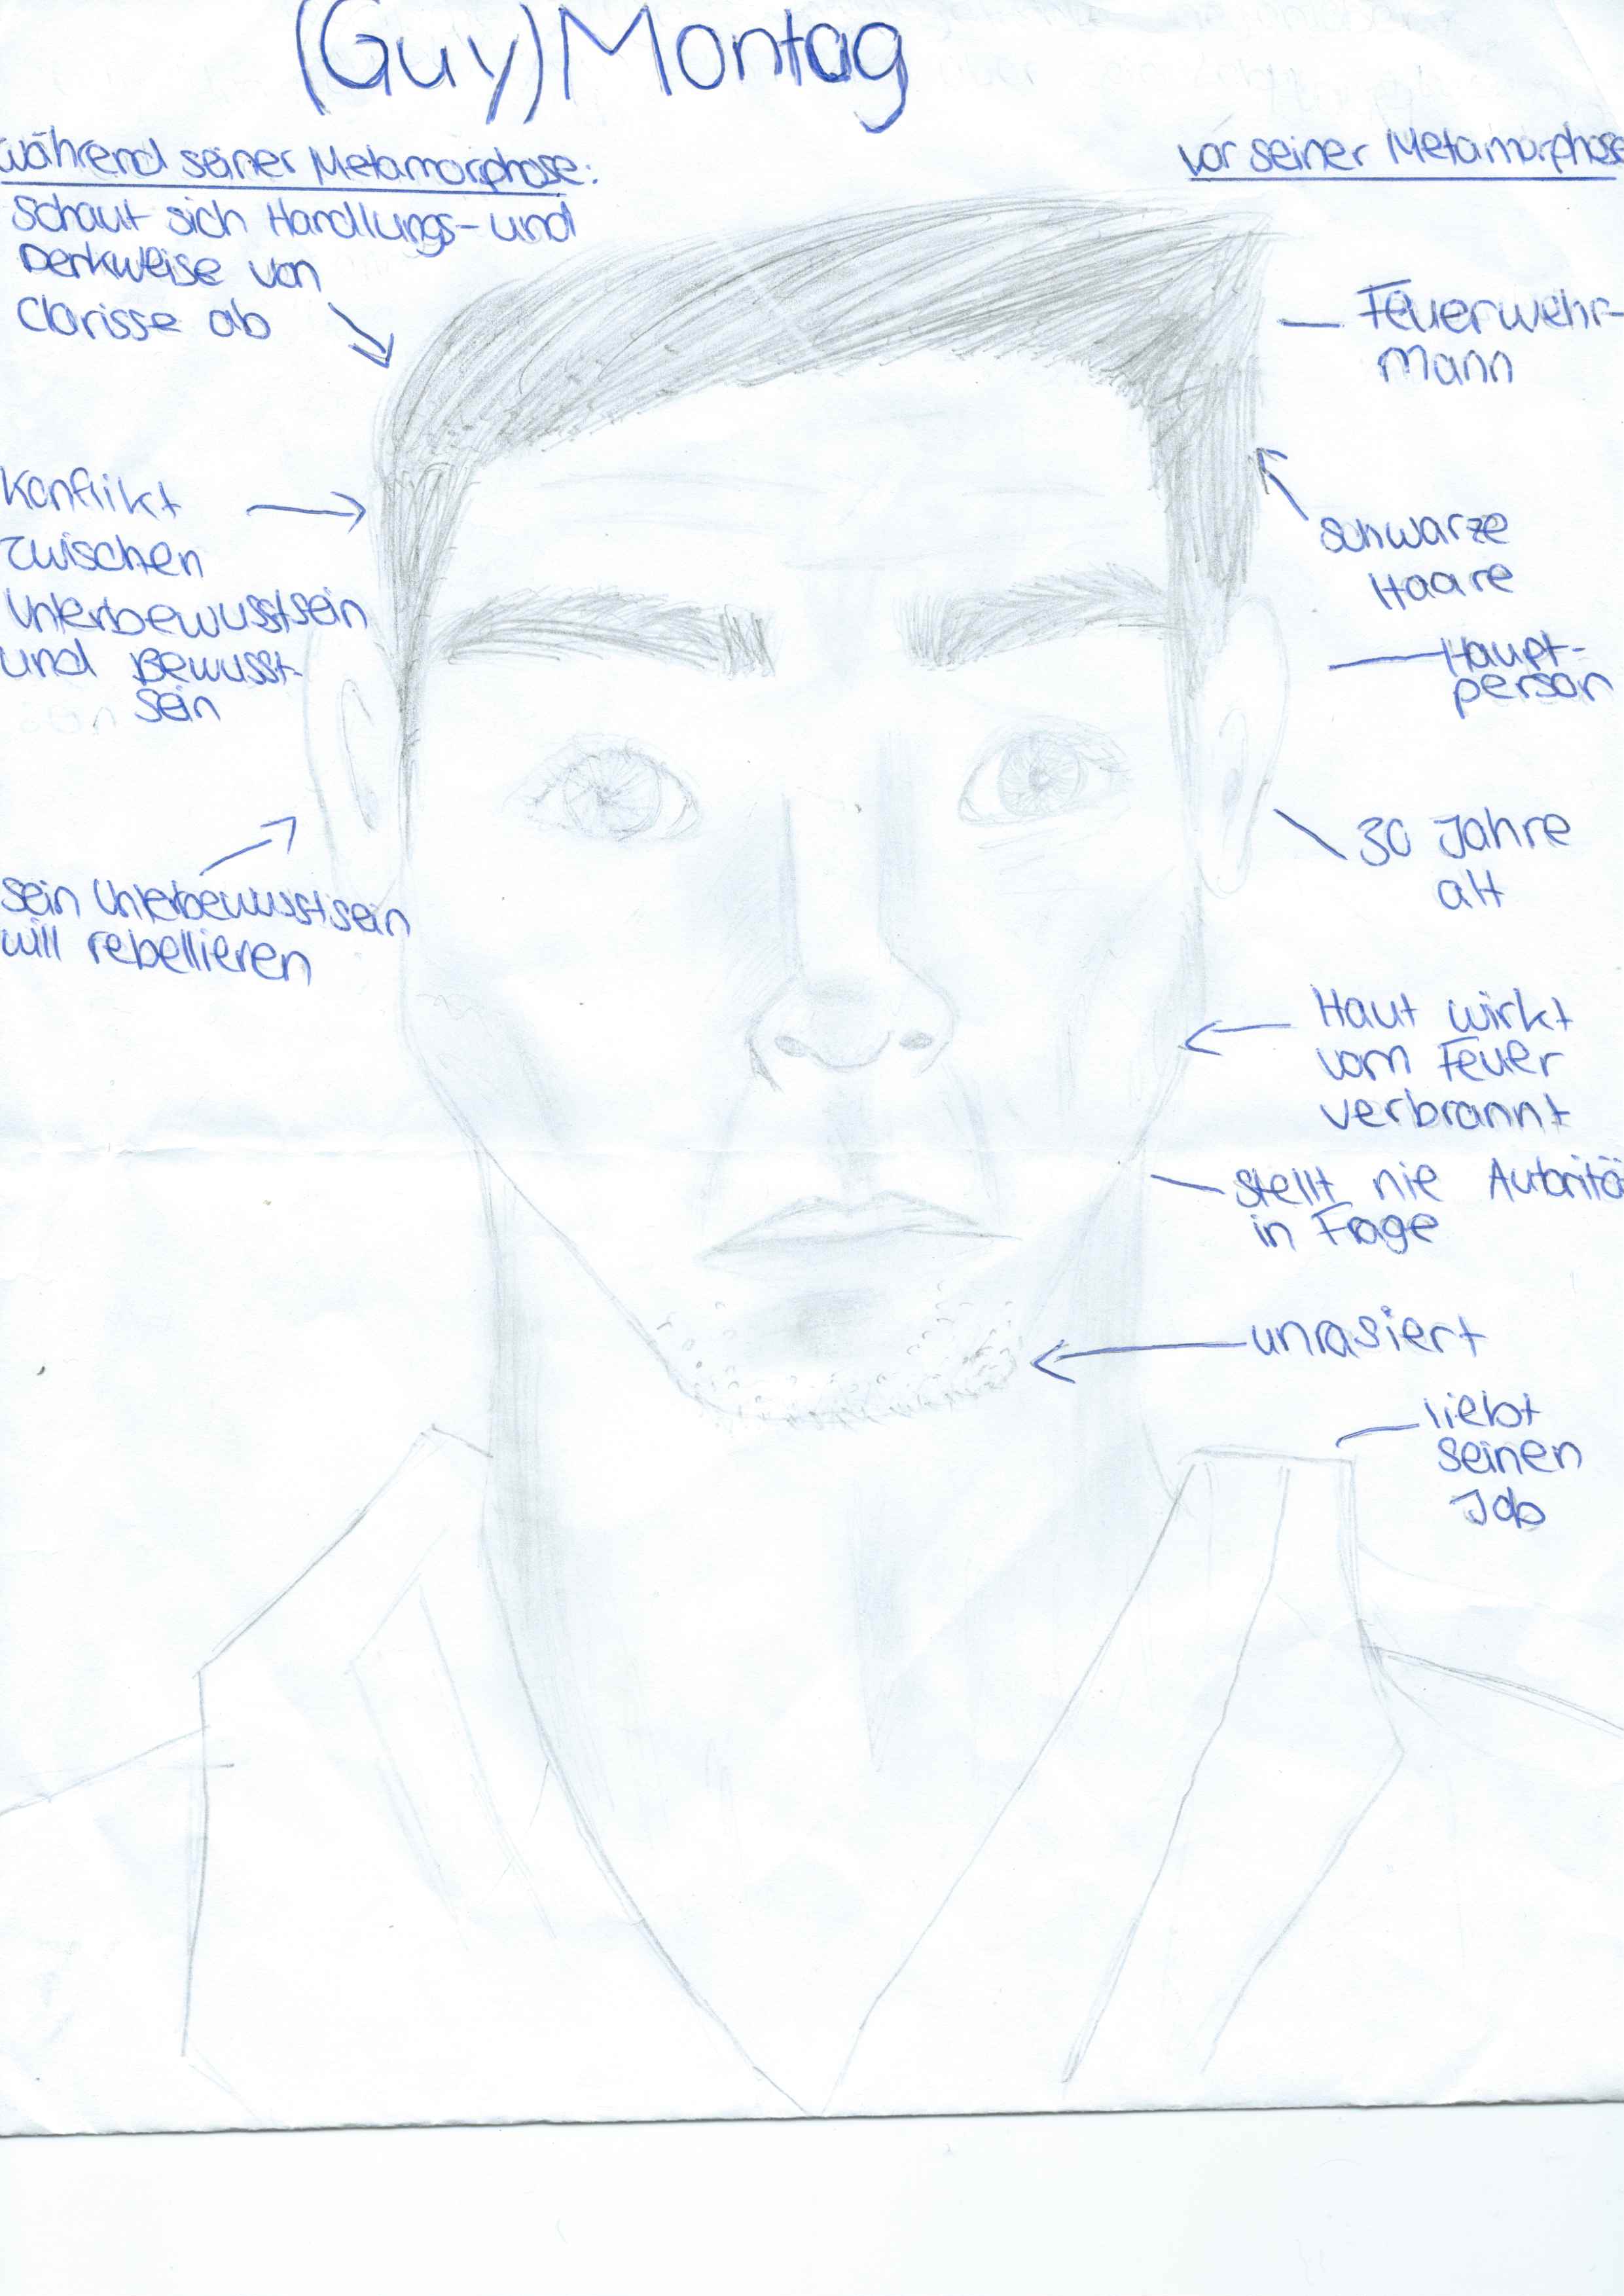 (Guy) Montag
während seiner Metamorphose:
Schaut sich Handlungs- und
Denkweise von
Clarisse ab
Konflikt
zwischen
Unterbewusstsein
und Bewusst-
sein
sein Unterbewusstsein
will rebellieren
vor seiner Metamorphose
Feuerwehr-
mann
schwarze
Haare
Haupt-
person
30 Jahre
alt
Haut wirkt
vom Feuer
verbrannt
stellt nie Autoritä
in Frage
unrasiert
liebt
seinen
Job